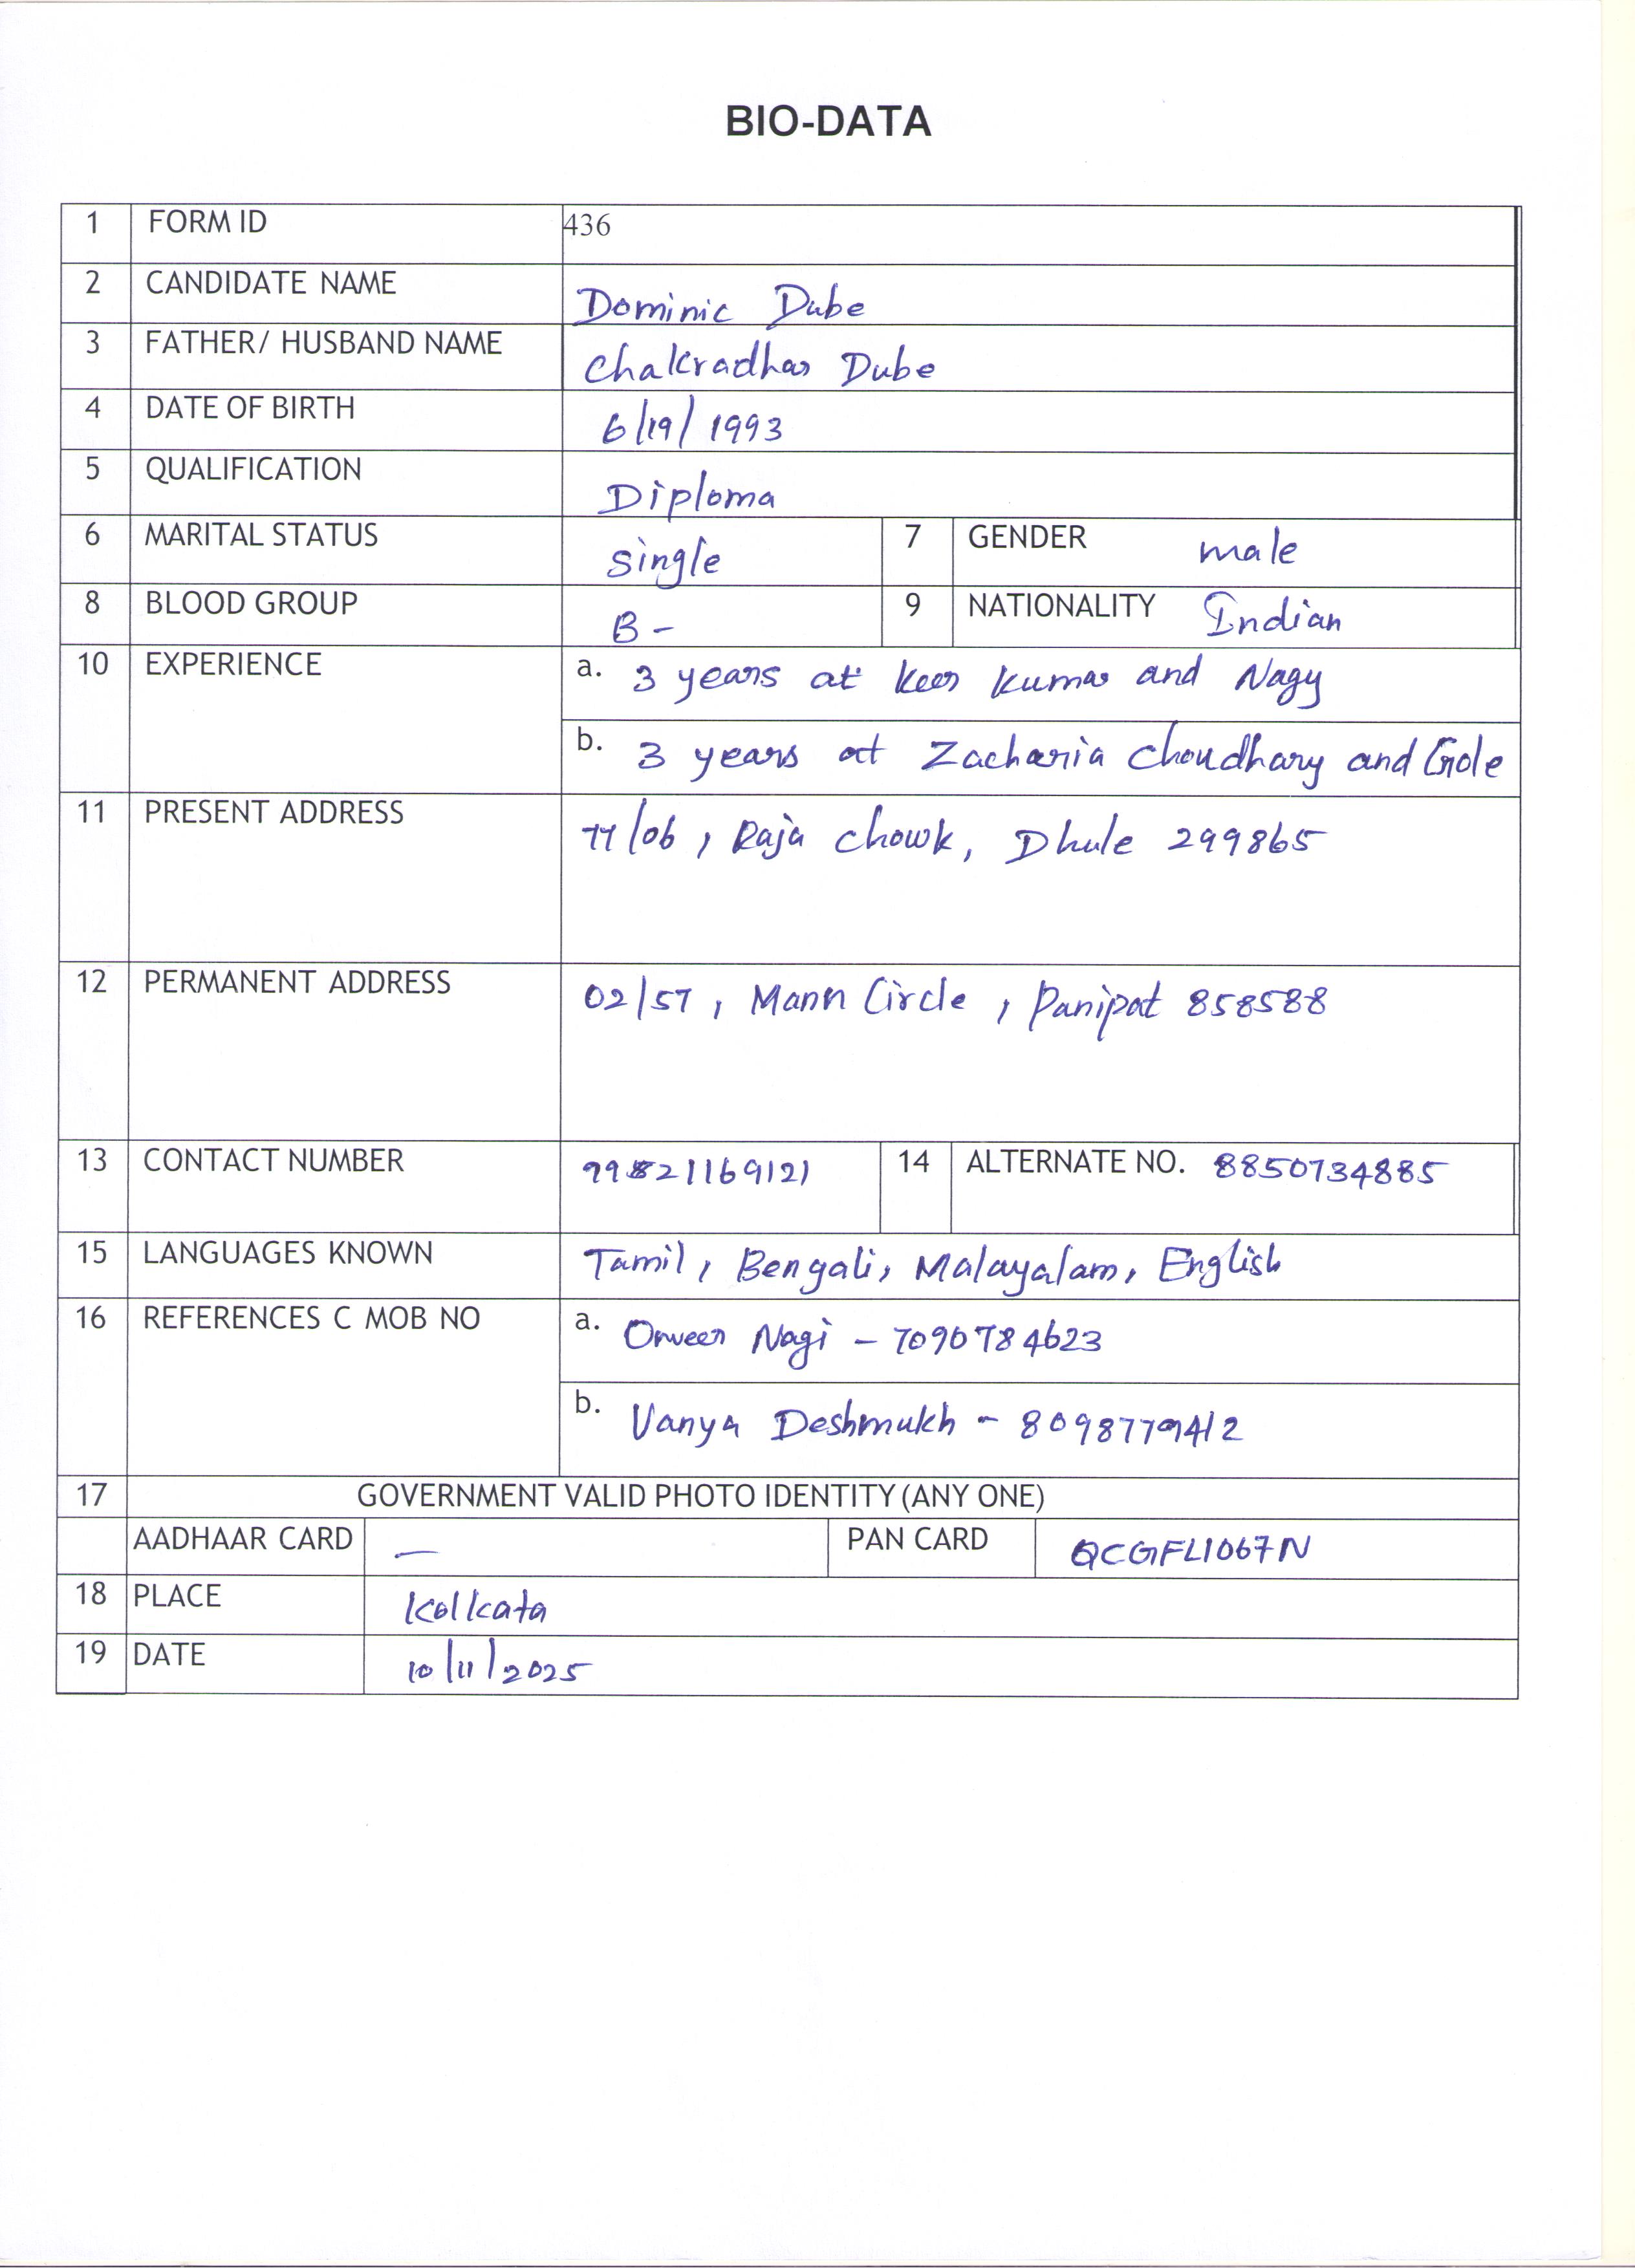 BIO-DATA
1 FORM ID 436
2 CANDIDATE NAME Dominic Dube
3 FATHER/ HUSBAND NAME Chakradhar Dube
4 DATE OF BIRTH 6/19/1993
5 QUALIFICATION Diploma
6 MARITAL STATUS single 7 GENDER male
8 BLOOD GROUP B- 9 NATIONALITY Indian
10 EXPERIENCE a. 3 years at Keer Kumar and Nagy
b. 3 years at Zacharia Choudhary and Gole
11 PRESENT ADDRESS 77/06, Raja Chowk, Dhule 299865
12 PERMANENT ADDRESS 02/57, Mann Circle, Panipat 858588
13 CONTACT NUMBER 99821169121 14 ALTERNATE NO. 8850734885
15 LANGUAGES KNOWN Tamil, Bengali, Malayalam, English
16 REFERENCES C MOB NO a. Onveer Nagi - 7090784623
b. Vanya Deshmukh - 8098779412
17 GOVERNMENT VALID PHOTO IDENTITY (ANY ONE)
AADHAAR CARD — PAN CARD QCGFL1067N
18 PLACE Kolkata
19 DATE 10/11/2025